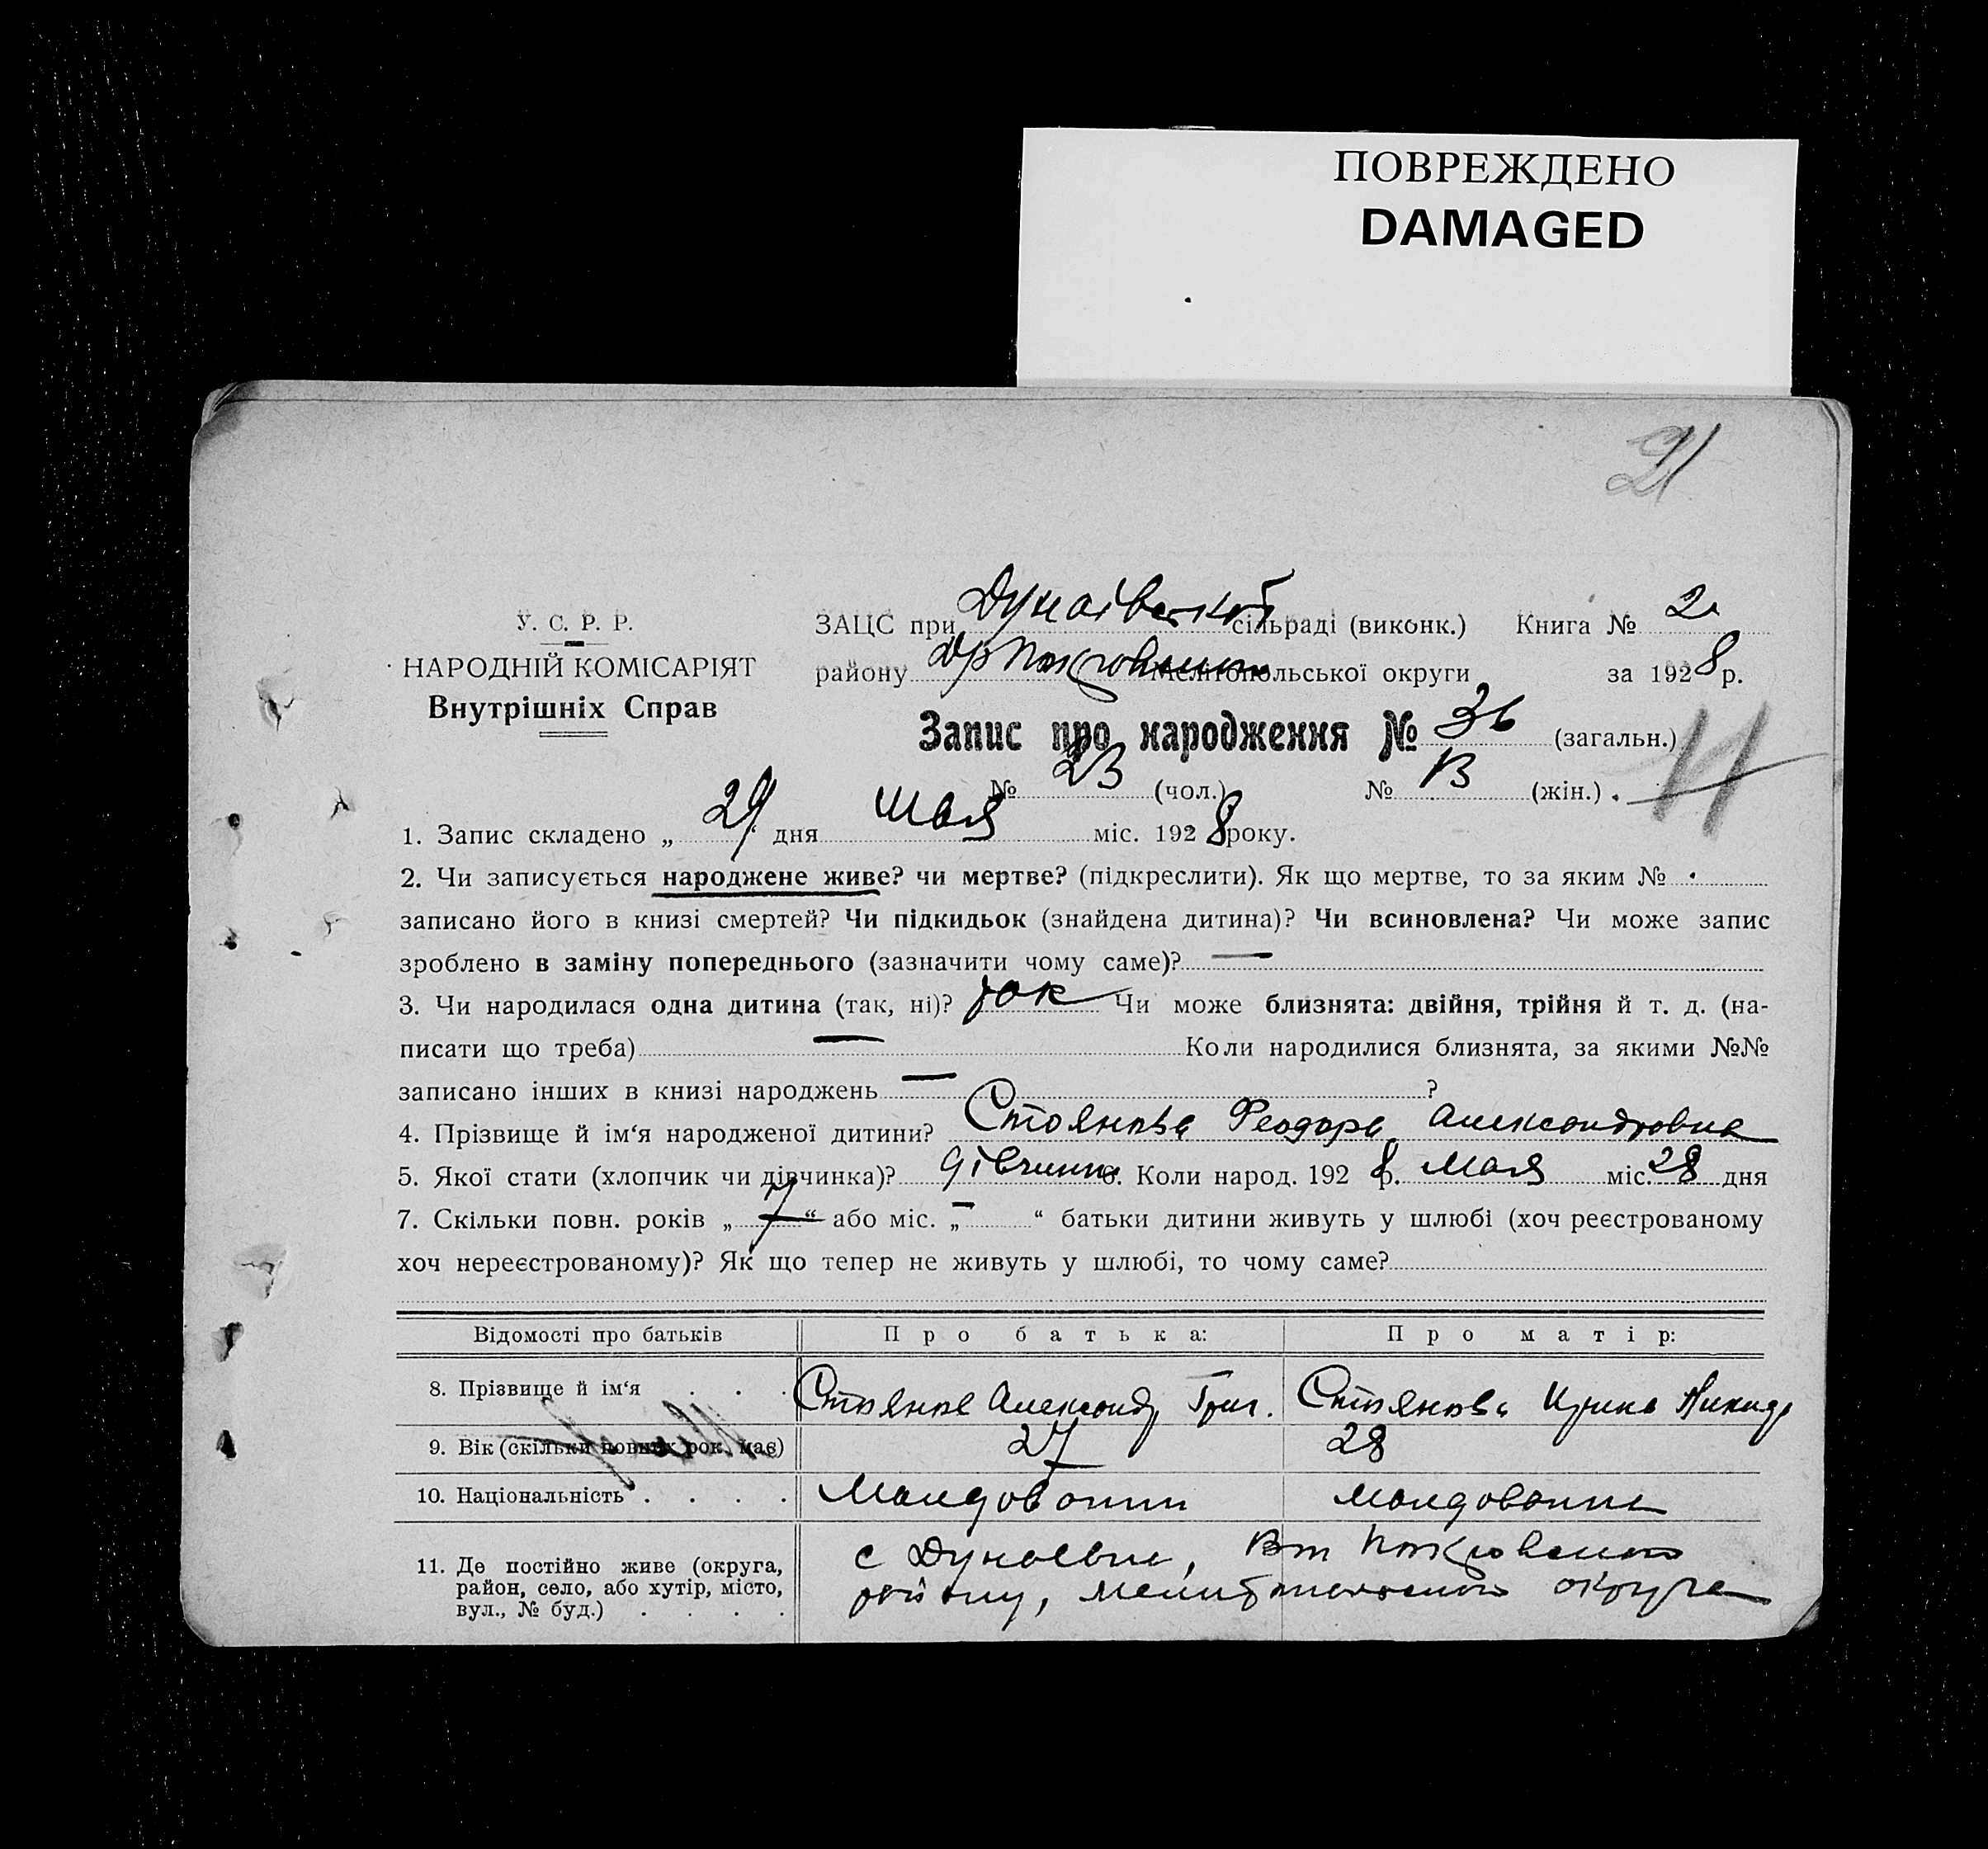 ПОВРЕЖДЕНО
DAMAGED
21
У. С. Р. Р.
НАРОДНІЙ КОМІСАРІЯТ
Внутрішніх Справ
ЗАЦС при Дунаівській сільраді (виконк.) Книга № 2
району Мелітопольської округи за 1928 р.
Запис про народження № 36 (загальн.)
№ 23 (чол.) № 13 (жін.)
1. Запис складено „ 29 дня мая міс. 1928 року.
2. Чи записується народжене живе? чи мертве? (підкреслити). Як що мертве, то за яким №
записано його в книзі смертей? Чи підкидьок (знайдена дитина)? Чи всиновлена? Чи може запис
зроблено в заміну попереднього (зазначити чому саме)? —
3. Чи народилася одна дитина (так, ні)? так Чи може близнята: двійня, трійня й т. д. (на-
писати що треба) — Коли народилися близнята, за якими №№
записано інших в книзі народжень — ?
4. Прізвище й ім‘я народженої дитини? Стоянова Феодора Александровна
5. Якої стати (хлопчик чи дівчинка)? дівчинка 6. Коли народ. 1928 р. мая міс. 28 дня
7. Скільки повн. років „ 7 “ або міс. „ — “ батьки дитини живуть у шлюбі (хоч реєстрованому
хоч нереєстрованому)? Як що тепер не живуть у шлюбі, то чому саме?
Відомості про батьків Про батька: Про матір:
8. Прізвище й ім‘я . . . Стоянов Александр Григ. Стоянова Ирина Никид
9. Вік (скільки повних рок. має) 27 28
10. Національність . . . . Молдованин Молдованка
11. Де постійно живе (округа,
район, село, або хутір, місто,
вул., № буд.) . . . .
с Дунаевка, Вт Покровского
району, Мелитопольського округа